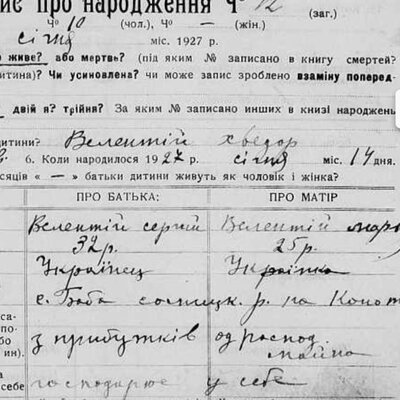 ис про народження Ч 12 (заг.)
Ч° 10 (чол.), Ч° — (жін.)
січня міс. 1927 р.
о живе? або мертвь? (під яким № записано в книгу смерті?
дитина)? Чи усиновлена? чи може запис зроблено взаміну поперед-
двій я? трійня? За яким № записано инших в книзі народжень
дитини? Велентій хведор
6. Коли народилося 1927 р. січня міс. 14 дня.
сяців « — » батьки дитини живуть як чоловік і жінка?
ПРО БАТЬКА: ПРО МАТІР
Велентій сергій Велентій
32 р. 25 р.
Українец Українка
с. Баба р. на Конот
са-
по-
бо
ин).
з прибутків од
майна
а
себе
господарює у себе